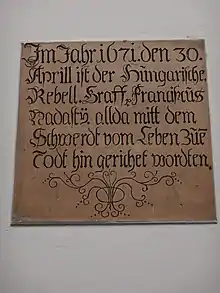 Im Jahr. 1671. den 30.
Aprill ist der Hungarische
Rebell. Graff, Franciscus
Nadasts. allda mitt dem
Schwerdt vom Leben Zue
Todt hin gerichet wordten.